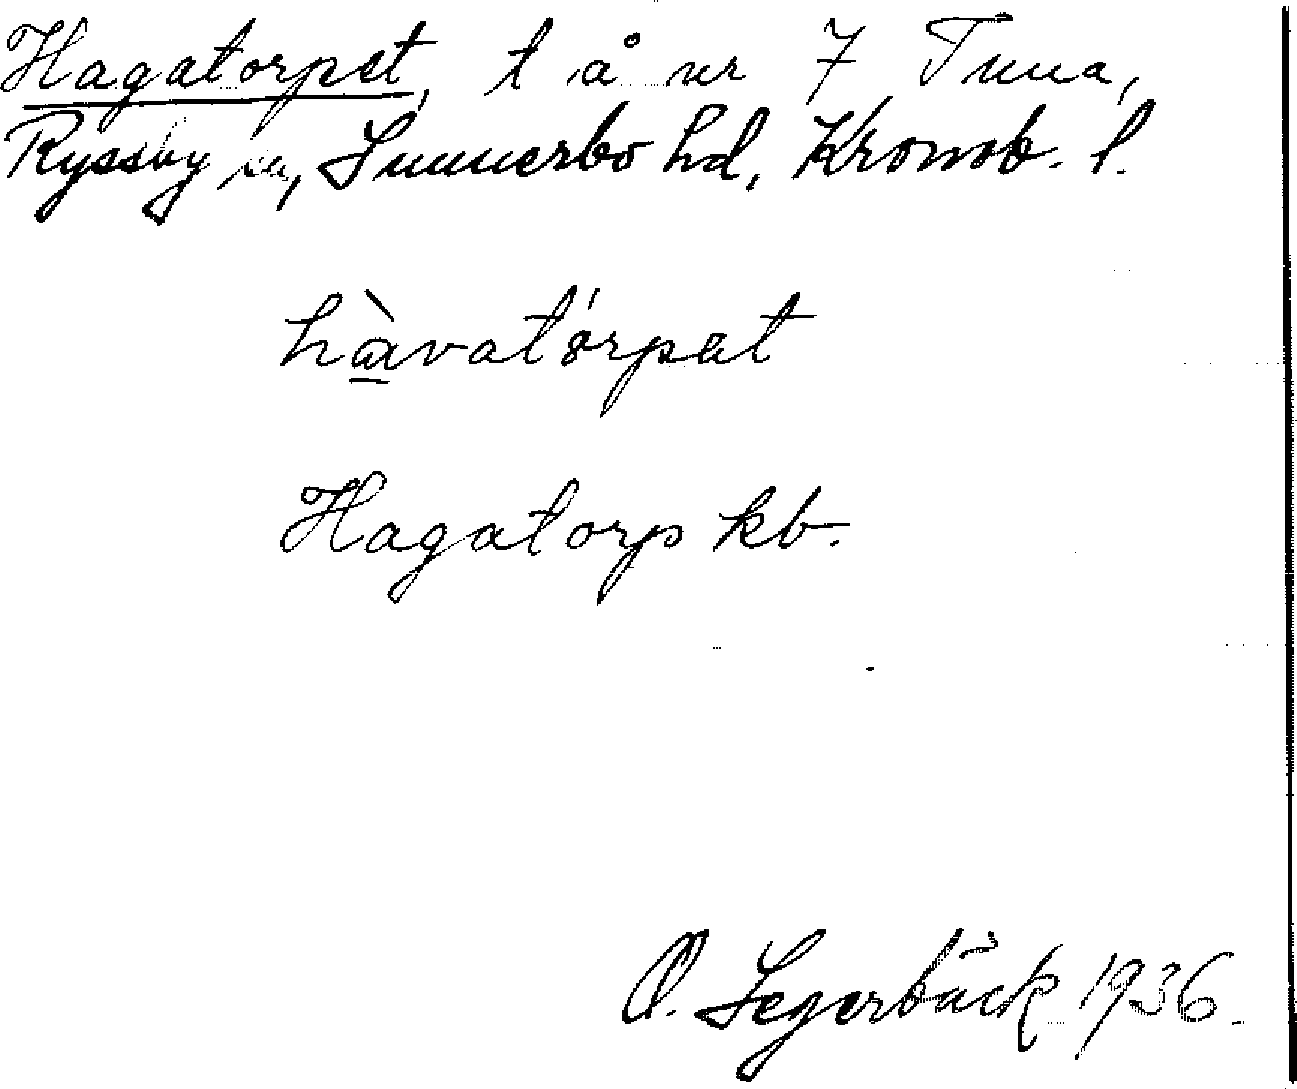 Hagatorpet, t å nr 7 Tuna,
Ryssby sn, Sunnerbo hd, Kronob. l.
hàvatórpat
Hagatorp kb.
O. Segerbäck 1936.